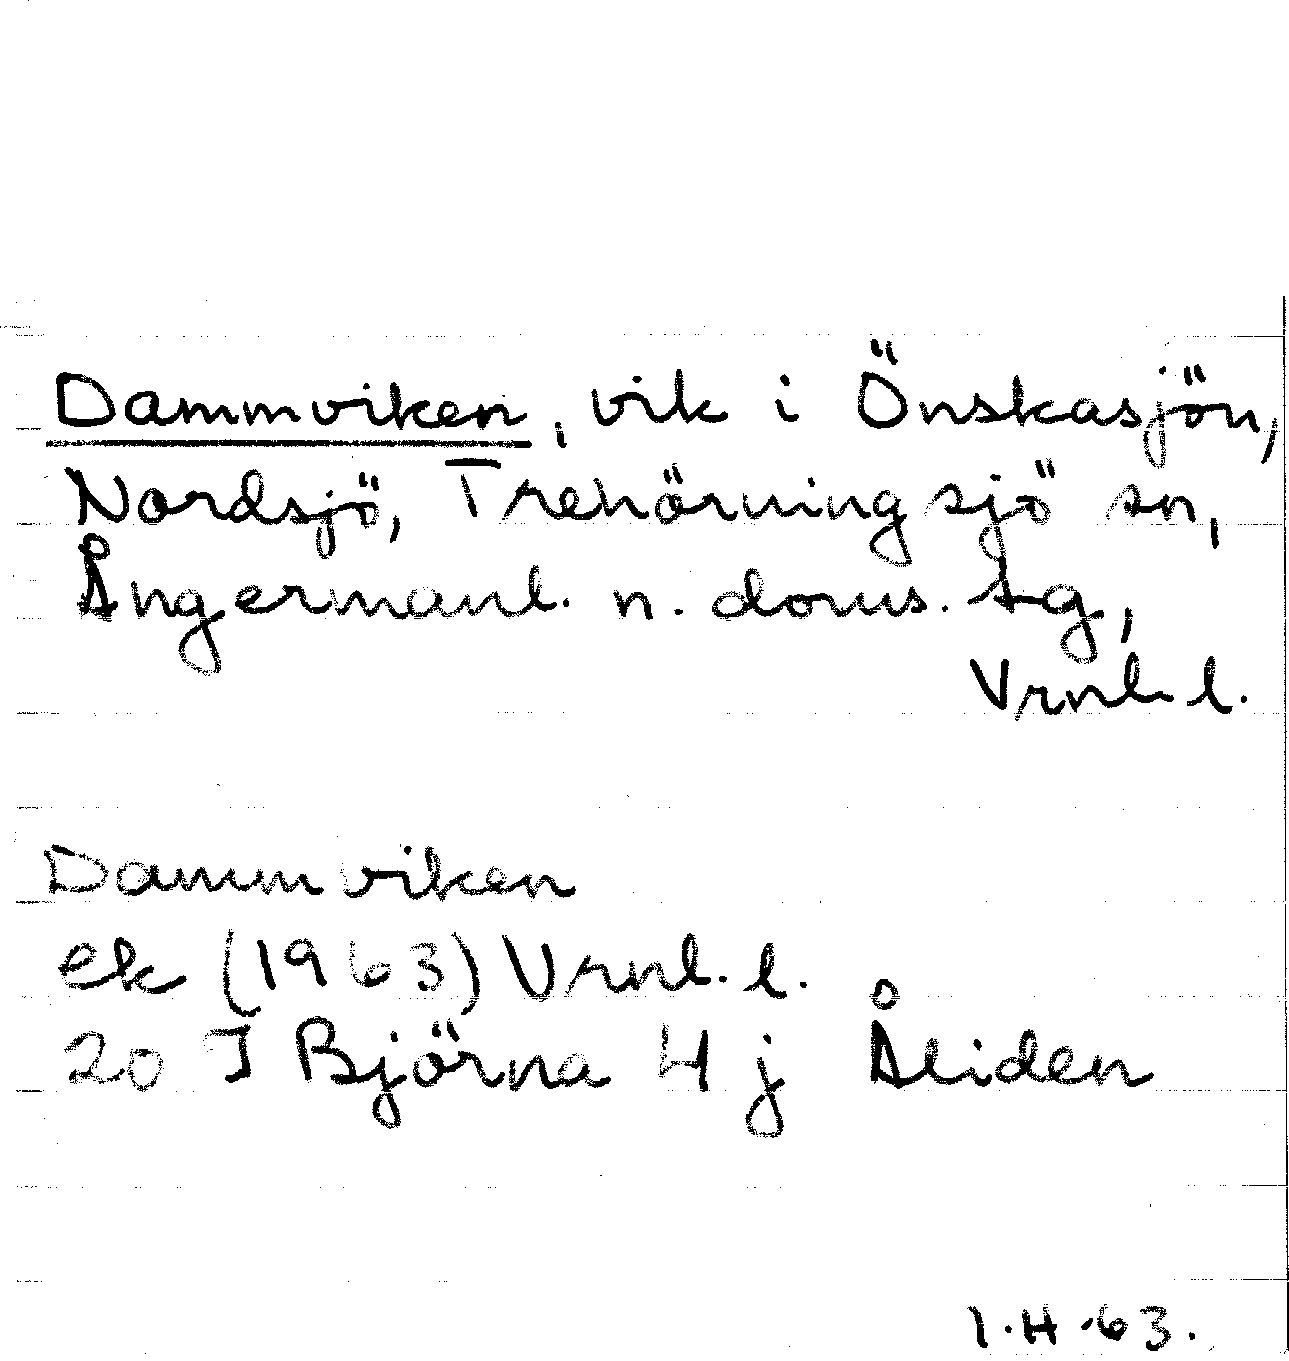 Dammviken, vik i Önskasjön,
Nordsjö, Trehörningsjö sn,
Ångermanl. n. doms. tg,
Vrnl. l.
Dammviken
ek (1963) Vrnl. l.
20 I Björna 4 j Åliden
1.4.63.